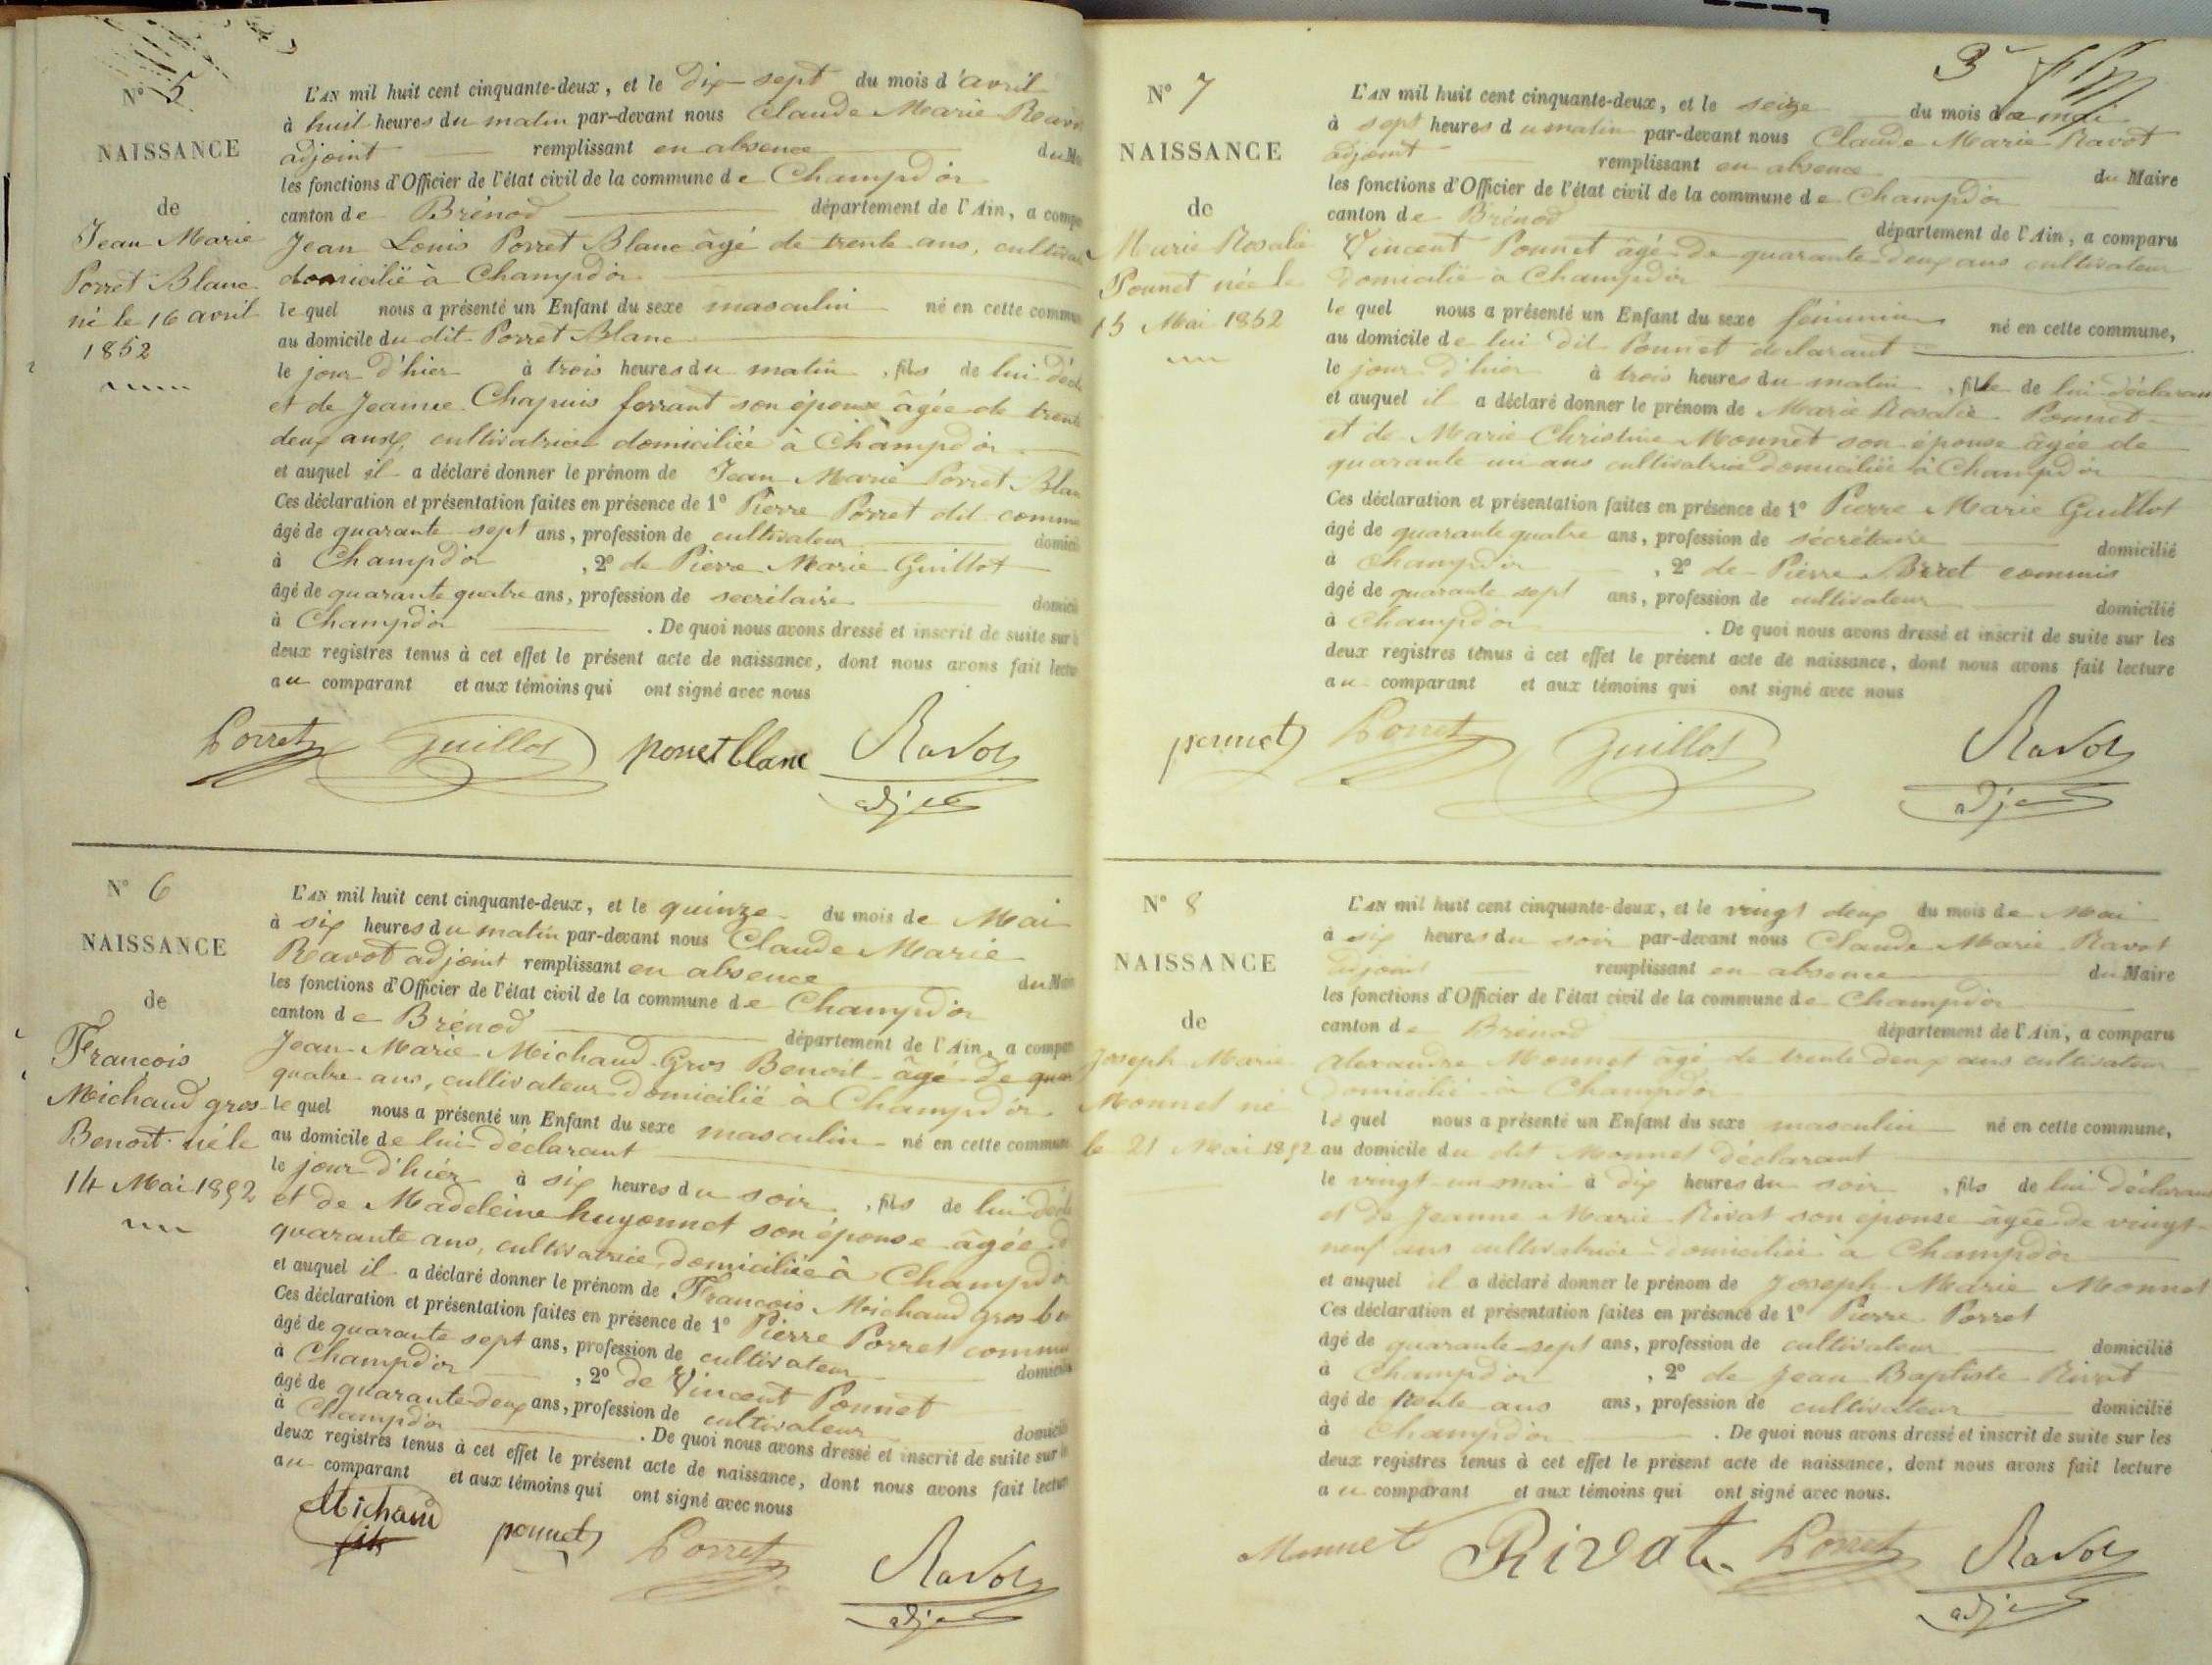 N° 5
NAISSANCE
de
Jean Marie
Porret Blanc
né le 16 avril
1852
L'AN mil huit cent cinquante-deux, et le dix-sept du mois d'avril
à huit heures du matin par-devant nous Claude Marie Ravot
adjoint remplissant en absence du Ma
les fonctions d'Officier de l'état civil de la commune de Champdor
canton de Brénod département de l'Ain, a compa
Jean Louis Porret Blanc âgé de trente ans, cultivat
domicilié à Champdor
lequel nous a présenté un Enfant du sexe masculin né en cette commun
au domicile du dit Porret Blanc
le jour d'hier à trois heures du matin, fils de lui décl
et de Jeanne Chapuis ferrant son épouse âgée de trente
deux ans, cultivatrice domiciliée à Champdor
et auquel il a déclaré donner le prénom de Jean Marie Porret Blan
Ces déclaration et présentation faites en présence de 1° Pierre Porret dit commis
âgé de quarante sept ans, profession de cultivateur domicil
à Champdor, 2° de Pierre Marie Guillot
âgé de quarante quatre ans, profession de secrétaire domicil
à Champdor. De quoi nous avons dressé et inscrit de suite sur l
deux registres tenus à cet effet le présent acte de naissance, dont nous avons fait lectu
au comparant et aux témoins qui ont signé avec nous
Porret Guillot porret blanc Ravot
adj
N° 6
NAISSANCE
de
François
Michaud gros
Benoit né le
14 Mai 1852
L'AN mil huit cent cinquante-deux, et le quinze du mois de Mai
à six heures du matin par-devant nous Claude Marie
Ravot adjoint remplissant en absence du Mai
les fonctions d'Officier de l'état civil de la commune de Champdor
canton de Brénod département de l'Ain, a compar
Jean Marie Michaud Gros Benoit âgé de quar
quatre ans, cultivateur domicilié à Champdor
lequel nous a présenté un Enfant du sexe masculin né en cette commun
au domicile de lui déclarant
le jour d'hier à six heures du soir, fils de lui décla
et de Madeleine huyonnet son épouse âgée d
quarante ans, cultivatrice, domiciliée à Champdor
et auquel il a déclaré donner le prénom de François Michaud gros be
Ces déclaration et présentation faites en présence de 1° Pierre Porret commis
âgé de quarante sept ans, profession de cultivateur domicilié
à Champdor, 2° de Vincent Ponnet
âgé de quarante-deux ans, profession de cultivateur domicil
à Champdor. De quoi nous avons dressé et inscrit de suite sur l
deux registres tenus à cet effet le présent acte de naissance, dont nous avons fait lectur
au comparant et aux témoins qui ont signé avec nous
Michaud ponnet Porret Ravot
adj
3
N° 7
NAISSANCE
de
Marie Rosalie
Ponnet née le
15 Mai 1852
L'AN mil huit cent cinquante-deux, et le seize du mois de mai
à sept heures du matin par-devant nous Claude Marie Ravot
adjoint remplissant en absence du Maire
les fonctions d'Officier de l'état civil de la commune de Champdor
canton de Brénod département de l'Ain, a comparu
Vincent Ponnet âgé de quarante-deux ans cultivateur
domicilié à Champdor
lequel nous a présenté un Enfant du sexe féminin né en cette commune,
au domicile de lui dit Ponnet déclarant
le jour d'hier à trois heures du matin, fille de lui déclarant
et auquel il a déclaré donner le prénom de Marie Rosalie Ponnet
et de Marie Christine Monnet son épouse âgée de
quarante un ans cultivatrice domiciliée à Champdor
Ces déclaration et présentation faites en présence de 1° Pierre Marie Guillot
âgé de quarante quatre ans, profession de sécrétaire domicilié
à Champdor, 2° de Pierre Porret commis
âgé de quarante sept ans, profession de cultivateur domicilié
à Champdor. De quoi nous avons dressé et inscrit de suite sur les
deux registres tenus à cet effet le présent acte de naissance, dont nous avons fait lecture
au comparant et aux témoins qui ont signé avec nous
ponnet Porret Guillot Ravot
adj
N° 8
NAISSANCE
de
Joseph Marie
Monnet né
le 21 Mai 1852
L'AN mil huit cent cinquante-deux, et le vingt deux du mois de Mai
à six heures du soir par-devant nous Claude Marie Ravot
adjoint remplissant en absence du Maire
les fonctions d'Officier de l'état civil de la commune de Champdor
canton de Brénod département de l'Ain, a comparu
Alexandre Monnet âgé de trente deux ans cultivateur
domicilié à Champdor
lequel nous a présenté un Enfant du sexe masculin né en cette commune,
au domicile du dit Monnet déclarant
le vingt-un mai à dix heures du soir, fils de lui déclarant
et de Jeanne Marie Rivat son épouse âgée de vingt
neuf ans cultivatrice domiciliée à Champdor
et auquel il a déclaré donner le prénom de Joseph Marie Monnet
Ces déclaration et présentation faites en présence de 1° Pierre Porret
âgé de quarante-sept ans, profession de cultivateur domicilié
à Champdor, 2° de Jean Baptiste Rivat
âgé de trente ans ans, profession de cultivateur domicilié
à Champdor. De quoi nous avons dressé et inscrit de suite sur les
deux registres tenus à cet effet le présent acte de naissance, dont nous avons fait lecture
au comparant et aux témoins qui ont signé avec nous.
Monnet Rivat Porret Ravot
adj